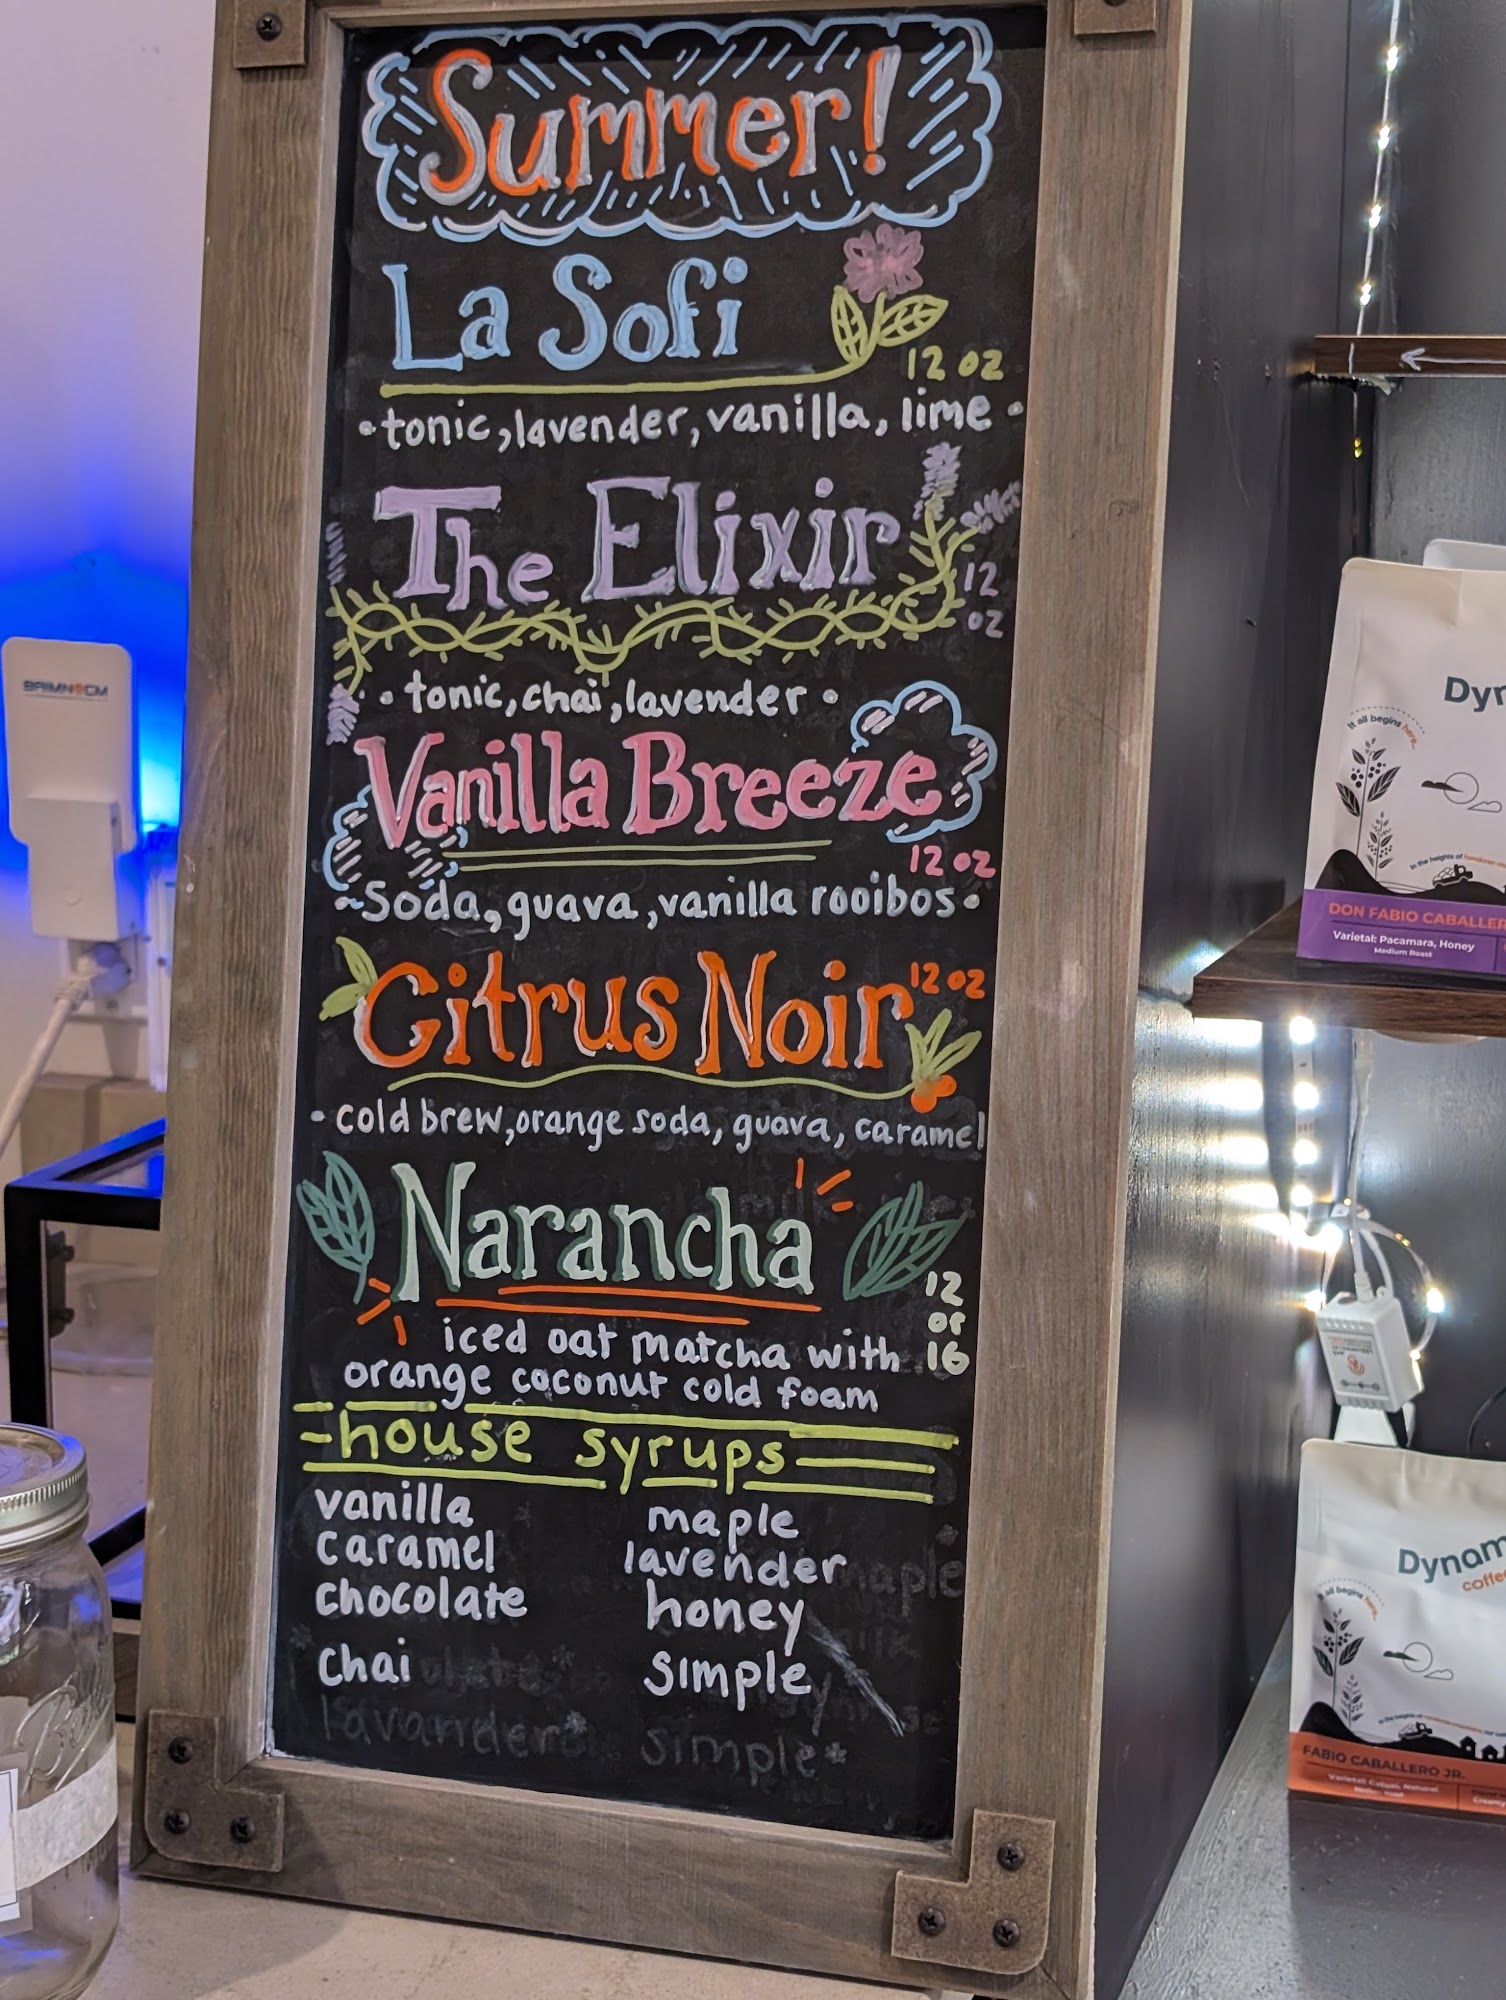 Summer!
La Sofi
12 oz
•tonic, lavender, vanilla, lime•
The Elixir
12
oz
•tonic, chai, lavender•
Vanilla Breeze
12 oz
~Soda, guava, vanilla rooibos•
Citrus Noir
12 oz
•cold brew, orange soda, guava, caramel
Narancha
12
or
16
iced oat matcha with
orange coconut cold foam
house syrups
vanilla
caramel
chocolate
chai
maple
lavender
honey
simple
maple
lavander*
simple*
BRIMNOCM
Dyn
It all begins here.
in the heights of honduran
DON FABIO CABALLER
Varietal: Pacamara, Honey
Medium Roast
Dynam
coffee
It all begins here.
FABIO CABALLERO JR.
Varietal: Catuai, Natural
Creamy